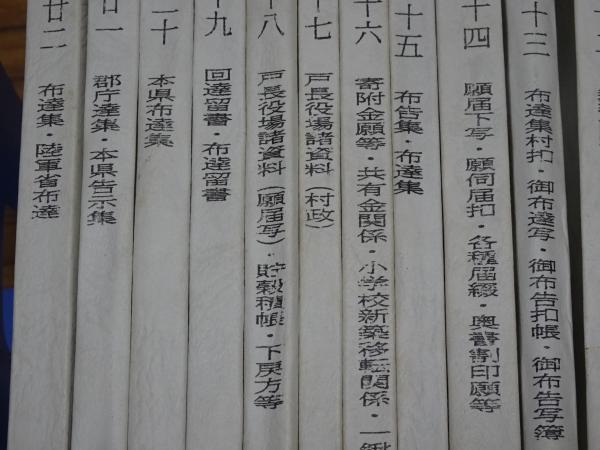 十三 布達集村扣・御布達写・御布告扣帳・御布告写簿
十四 願届下写・願伺届扣・各種届綴・奥書割印願等
十五 布告集・布達集
十六 寄附金願等・共有金関係・小学校新築移転関係・一
十七 戸長役場諸資料(村政)
十八 戸長役場諸資料(願届写)・貯穀種帳・下戻方等
十九 回達留書・布達留書
二十 本県布達集
廿一 郡庁達集・本県告示集
廿二 布達集・陸軍省布達